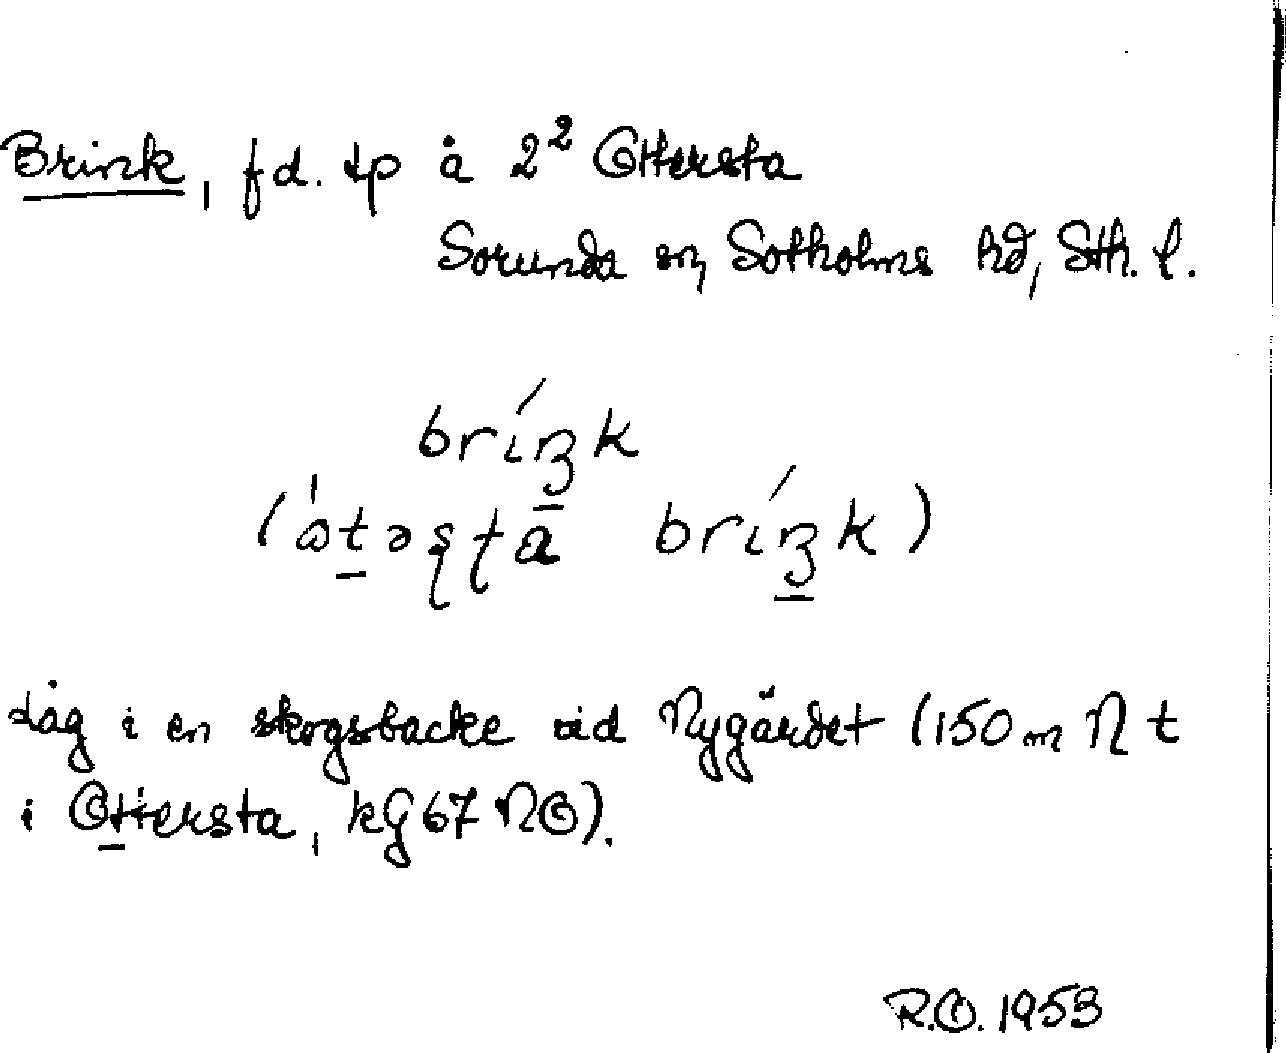 Brink, fd. tp å 2² Ottersta
Sorunda sn, Sotholms hd, Sth. l.
bríŋk
bríŋk)
Låg i en skogsbacke vid Nygärdet (150 m N t
i Ottersta, kG 67 NO).
R.O. 1953